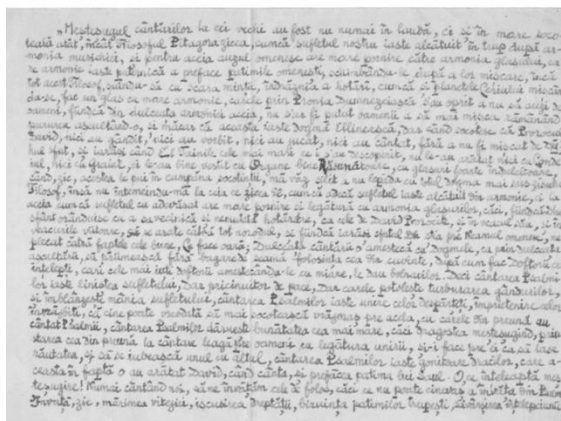 „Meșteșugul cântărilor la cei vechi au fost nu numai în laudă, ci și în mare soco-
teală atât, încât Filosoful Pitagora zicea, cumcă sufletul nostru iaste alcătuit în trup după ar-
monia musichiei, și pentru aceia auzul omenesc are mare pornire către armonia glasului, ca-
re armonie iaste puternică a preface patimile omenești, scumbându-le după a lor mișcare, încă
tot acest Filosof, suindu-să cu scara minții, îndrăznia a hotărî, cumcă și planetele Cerului mișcân-
du-se, fac un glas cu mare armonie, carele prin Pronia Dumnezeiască s'au oprit a nu să auzi de
oameni, fiindcă din dulceața armoniei aceia, nu s'ar fi putut oamenii a să mai mișca rămânând
pururea ascultând-o, și măcar că aceasta iaste dogmă Ellinească, dar când socotesc că Prorocul
David, nici au gândit, nici au vorbit, nici au jucat, nici au cântat, fără a nu fi mișcat de
și iarăși când
iul, nici cu Graiul, ci le-au bine vestit cu cu glăsuiri foarte îndulcitoare,
când, zic, acestea le pui în cumpăna socotelii, mă văz silit a nu lepăda cu totul dogma mai sus zisului
Filosof, însă nu întemeindu-mă la ceia ce zicea el, cumcă adică sufletul iaste alcătuit din armonie, ci la
aceia cumcă sufletul cu adevărat are mare pornire și legătură cu armonia glasurilor, căci, fiindcă Duhul
sfânt orânduise cu a sa vecinică și nerudită hotărâre, ca cele de David Prorocite, și în vremea sa, și în
veacurile viitoare, să se arate către tot norodul, și fiindcă iarăși Neamul omenesc, ne
plecat către faptele cele bune, Ce face oară; Dulceața cântării o amestecă cu Dogmele, ca prin dulceața
ascultării, să primească fără băgare de seamă folosința cea din cuvinte, după cum fac Doftorii cei
înțelepți, carii cele mai iuți doftorii amestecându-le cu miere, le dau bolnavilor. Deci cântarea Psalmi-
lor iaste liniștea sufletului, dar pricinuitor de pace, Dar carele potolește turburarea gândurilor,
și îmblânzește mânia sufletului, cântarea Psalmilor iaste unire celor despărțiți, împrietenire celor
învrăjbiți, că cine poate vreodată să mai socotească vrăjmaș pre acela, cu carele din preună au
cântat Psalmii, cântarea Psalmilor dăruiește bunătatea cea mai mare, căci dragostea meșteșugind,
starea cea din preună la cântare leagă pre oameni cu legătura unirii, și-i face pre ei ca să lase
răutatea, și să se iubească unul cu altul, cântarea Psalmilor iaste gonitoare dracilor, care a-
ceasta în faptă o au arătat David, când cânta, și prefăcea patima lui Saul. O, ce înțeleaptă meș-
teșugire! Numai cântând noi, să ne învățăm cele de folos, căci ce nu poate cineva a învăța din Psalmi
zic, mărimea vitejiei, iscusirea dreptății, biruința patimilor trupești, săvârșirea înțelepciunii